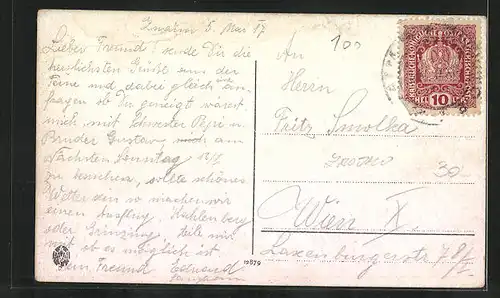 Znaim 5. Mai 17
Lieber Freund! sende Dir die
herzlichsten Grüße aus der
Ferne und dabei gleich an-
fragen ob Du geneigt wärest
mich, mit Schwester Pepi u.
Bruder Gustav, auch am
Nächsten Sonntag
zu besuchen, sollte schönes
Wetter so machen wir
einen Ausflug. Kahlenberg
oder Grinzing, teile mir
mit ob es möglich ist.
Dein Freund Eduard
An
100
Herrn
Fritz Smolka
30
Wien X.
Laxenburgerstr 78/
12679
10